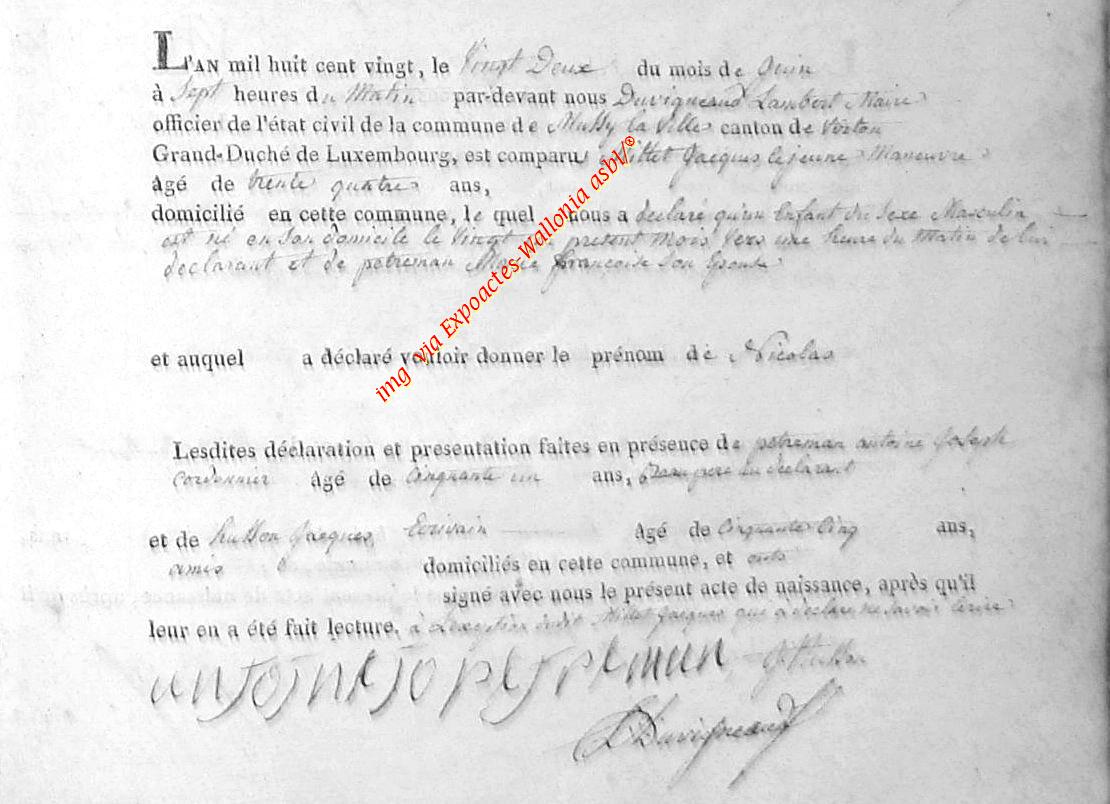 L'AN mil huit cent vingt, le Vingt Deux du mois de Juin
à Sept heures du Matin par-devant nous Duvigneaud Lambert Maire
officier de l'état civil de la commune de Mussy la Ville canton de Virton
Grand-Duché de Luxembourg, est comparu Millet Jacques le jeune Maneuvre
âgé de trente quatre ans,
domicilié en cette commune, le quel nous a declaré qu'un Enfant du Sexe Masculin
est né en son domicile le Vingt du present mois vers une heure du Matin de lui
declarant et de petreman Marie françoise Son Epouse
et auquel a déclaré vouloir donner le prénom de Nicolas
Lesdites déclaration et presentation faites en présence de petreman antoine Joseph
cordonnier âgé de Cinquante un ans, Beau pere du declarant
et de husson Jacques Ecrivain âgé de Cinquante Cinq ans,
amis domiciliés en cette commune, et ont
signé avec nous le présent acte de naissance, après qu'il
leur en a été fait lecture, à L'exception dudit Millet Jacques qui a declaré ne Savoir écrire
antoine jo petremen J husson
L Duvigneaud
img via Expoactes-Wallonia asbl/®